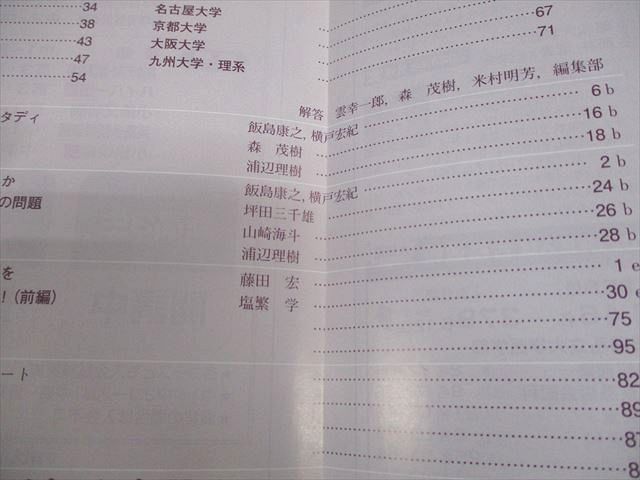 34 名古屋大学
38 京都大学 67
43 大阪大学 71
47 九州大学・理系
54
解答 雲幸一郎, 森 茂樹, 米村明芳, 編集部
タディ 飯島康之, 横戸宏紀 6 b
森 茂樹 16 b
浦辺理樹 18 b
か 飯島康之, 横戸宏紀 2 b
の問題 坪田三千雄 24 b
山崎海斗 26 b
浦辺理樹 28 b
を 藤田 宏 1 e
! (前編) 塩繁 学 30 e
75
95
ート 82
89